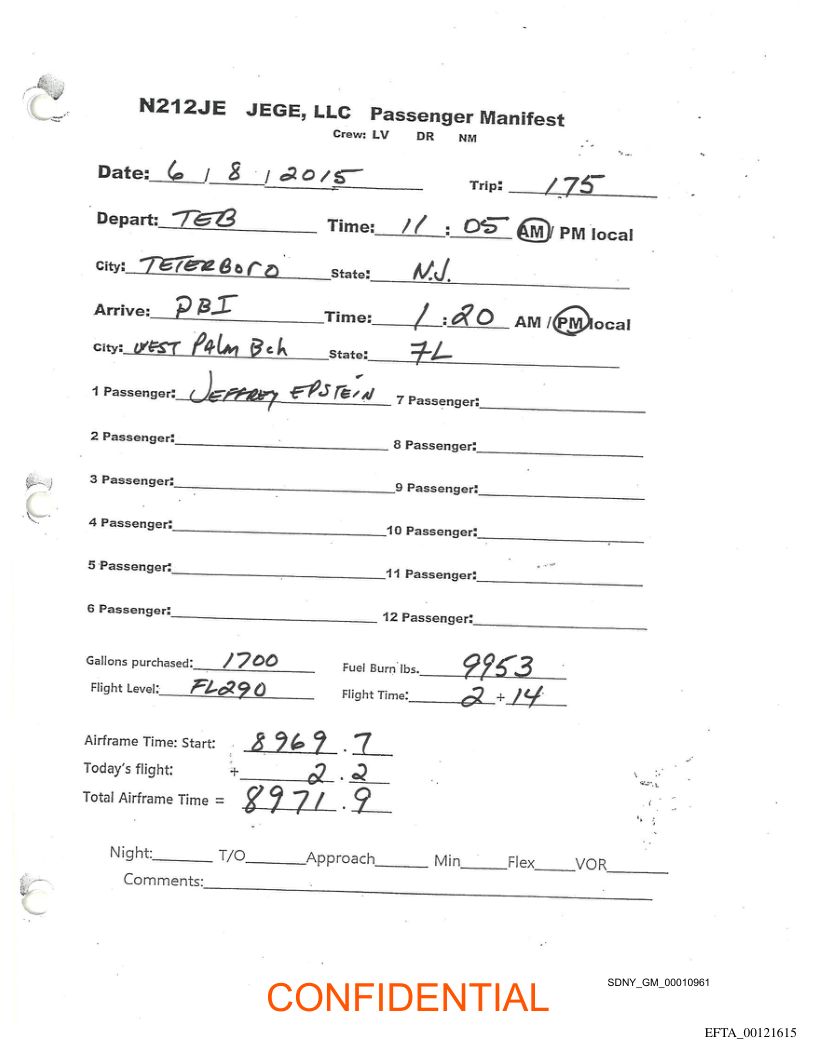 N212JE JEGE, LLC Passenger Manifest
Crew: LV DR NM
Date: 6 / 8 / 2015 Trip: 175
Depart: TEB Time: 11 : 05 AM / PM local
City: TETERBORO State: N.J.
Arrive: PBI Time: 1 : 20 AM / PM local
City: WEST PALM Bch State: FL
1 Passenger: JEFFREY EPSTEIN 7 Passenger:
2 Passenger: 8 Passenger:
3 Passenger: 9 Passenger:
4 Passenger: 10 Passenger:
5 Passenger: 11 Passenger:
6 Passenger: 12 Passenger:
Gallons purchased: 1700 Fuel Burn lbs. 9953
Flight Level: FL290 Flight Time: 2 + 14
Airframe Time: Start: 8969.7
Today's flight: + 2.2
Total Airframe Time = 8971.9
Night: T/O Approach Min Flex VOR
Comments:
SDNY_GM_00010961
CONFIDENTIAL
EFTA_00121615